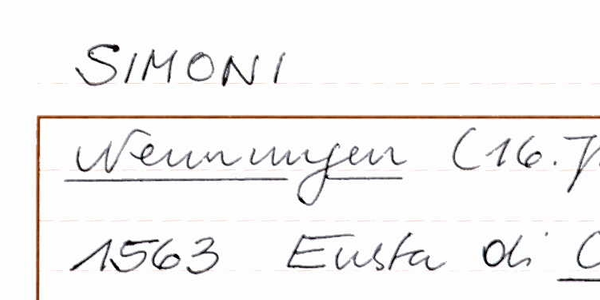 SIMONI
Nenningen (16.
1563 Eusta di